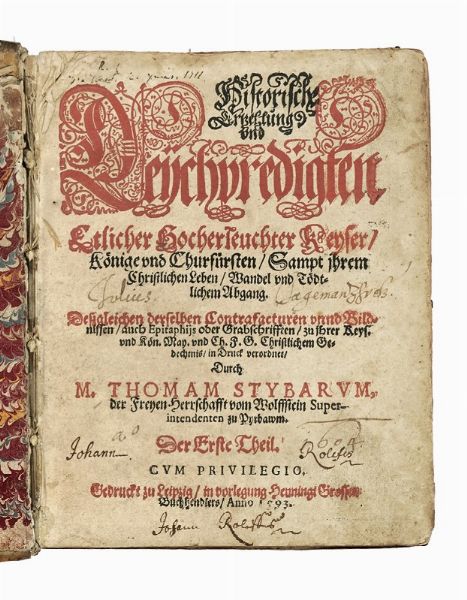 Historische
Erzehlung
vnd
Leychpredigten
Etlicher Hocherleuchter Keyser /
Könige vnd Churfürsten / Sampt jhrem
Christlichen Leben / Wandel vnd Tödt-
lichem Abgang.
Julius
Deßgleichen derselben Contrafacturen vnnd Bild-
nissen / auch Epitaphijs oder Grabschrifften / zu jhrer Keys.
vnd Kön. May. vnd Ch. F. G. Christlichem Ge-
dechtnis / in Druck verordnet /
Durch
M. THOMAM STYBARVM,
der Freyen Herrschafft vom Wolffstein Super-
intendenten zu Pyrbawm.
Der Erste Theil.
Johann
CVM PRIVILEGIO.
Gedruckt zu Leipzig / in vorlegung Henningi Grossen
Buchhendlers / Anno 1593.
Johann